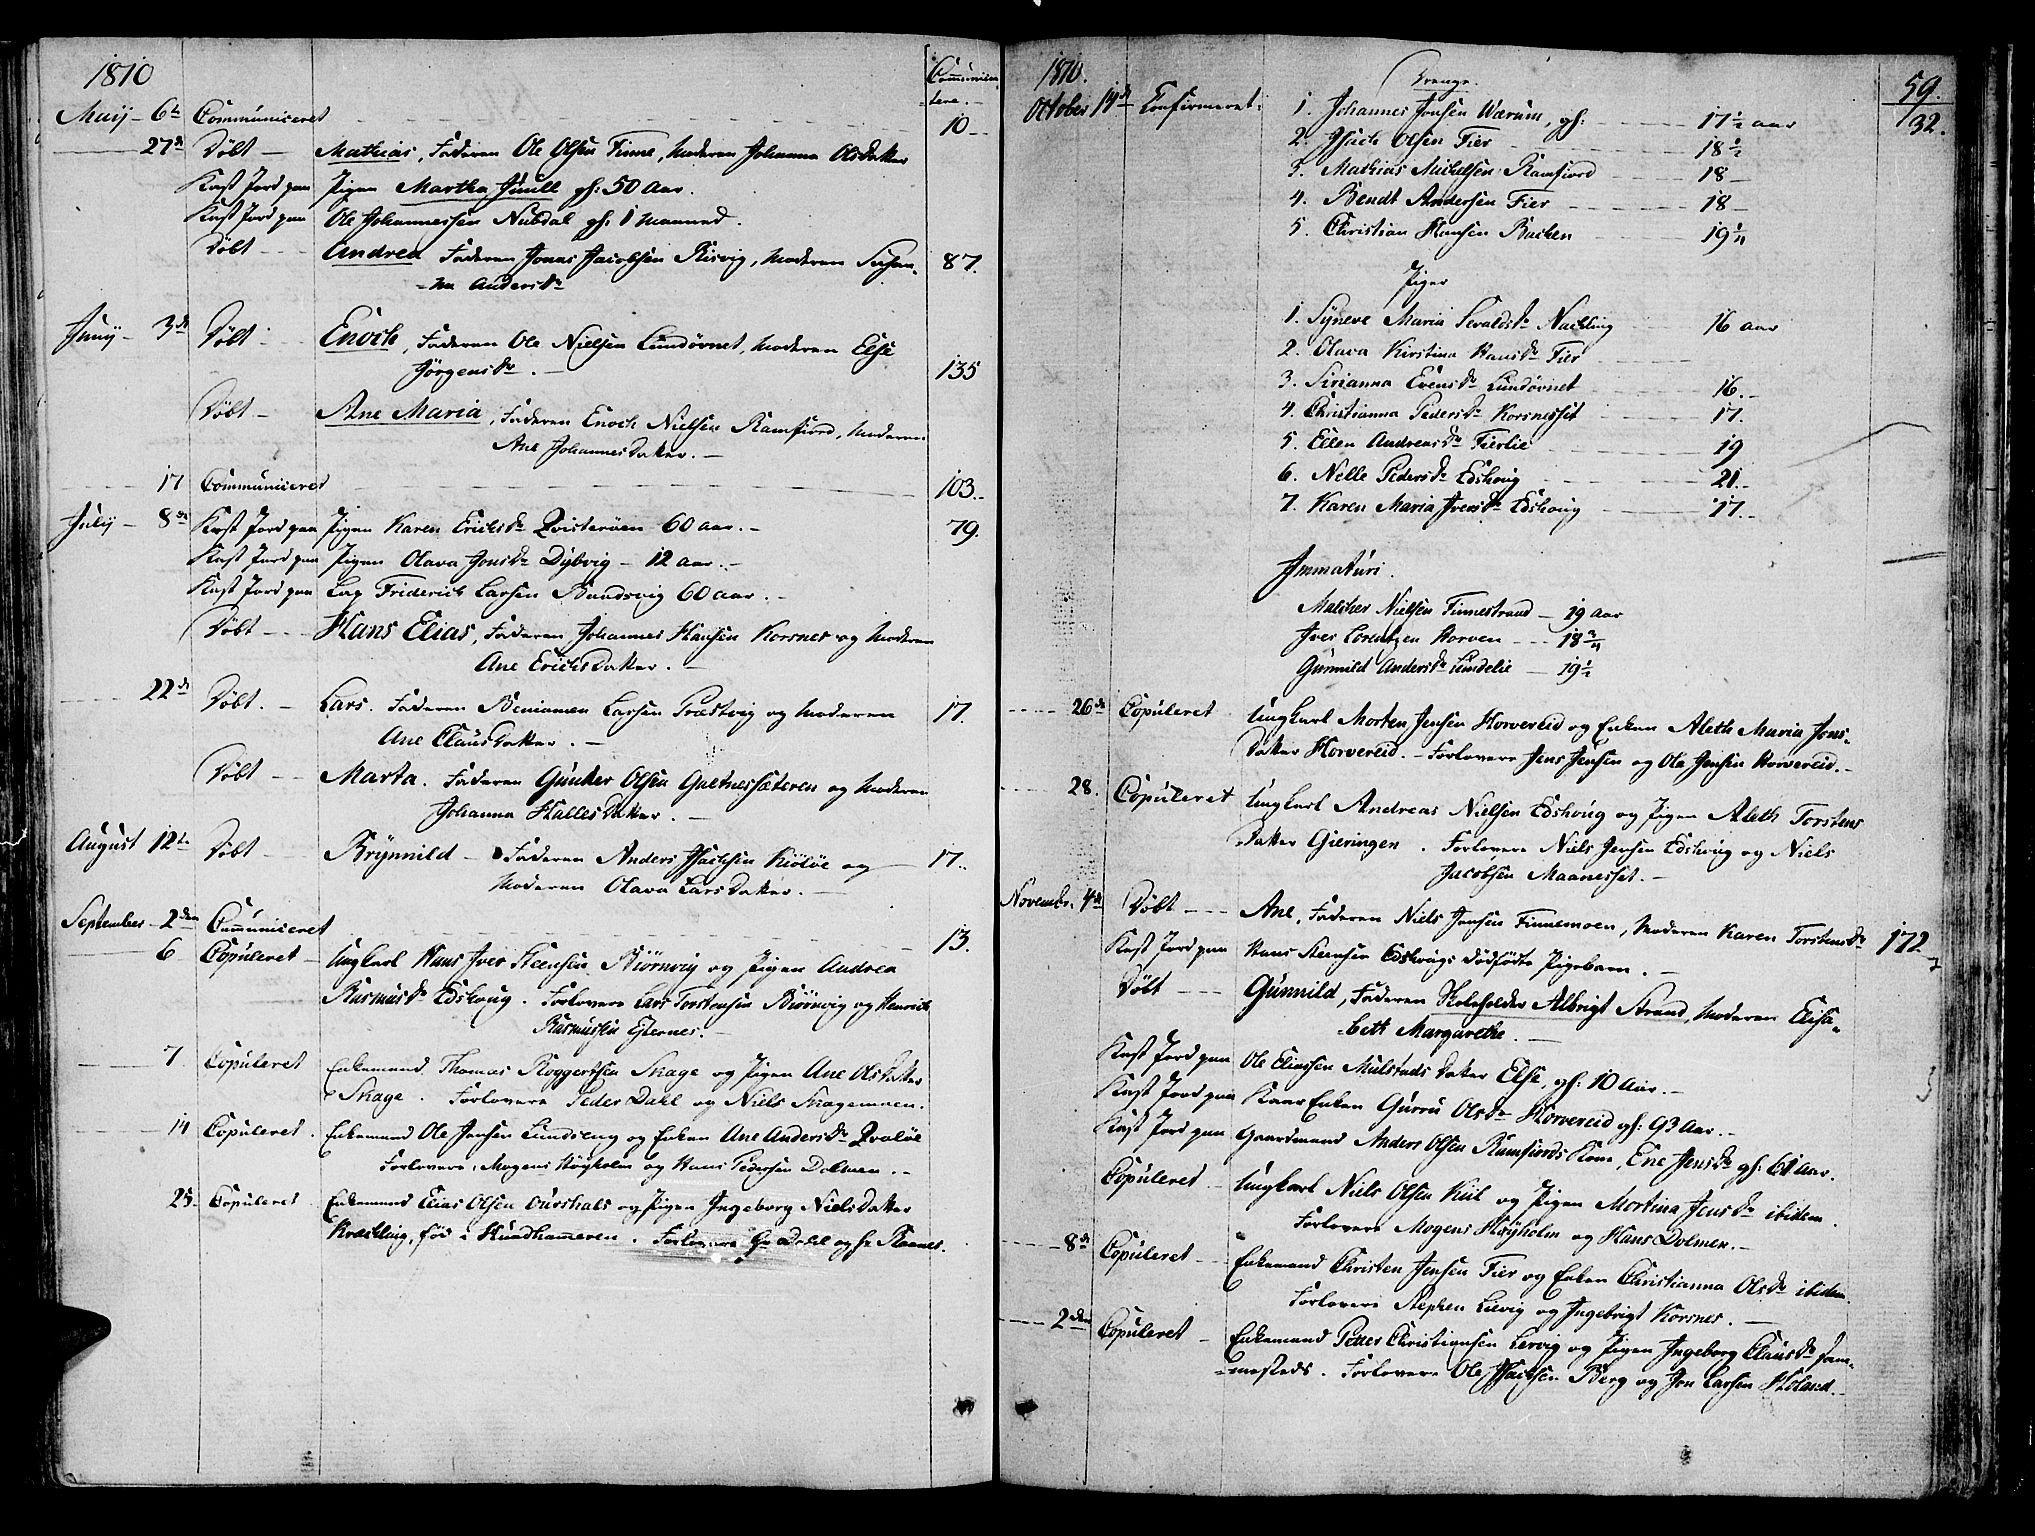 1810
Communicantere.
Maij - 6te Communiceret 10
27de Døbt - Mathias, Faderen Ole Olsen Finne, Moderen Johanna Olsdatter
Kast Jord paa Pigen Martha Juull gl: 50 Aar.
Kast Jord paa Ole Johannessen Nubdal gl: 1 Maaned.
Døbt - Andrea Faderen Jonas Jacobsen Risvig, Moderen Susan- 87.
-na Andersdr
Junij - 3de Døbt - Enoch, Faderen Ole Nielsen Lundøvnet, Moderen Else
Jørgensdr. 135
Døbt - Ane Maria, Faderen Enoch Nielsen Ramfiord, Moderen
Ane Johannesdatter.
17 Communiceret 103.
Julij - 8de Kast Jord paa Pigen Karen Erichsdr Qvisterøen 60 aar. 79.
Kast Jord paa Pigen Olava Jonsdr Dybvig - 12 aar.
Kast Jord paa Lap Friderich Larsen Bundsvig 60 aar.
Døbt - Hans Elias, Faderen Johannes Hansen Korsnes og Moderen
Ane Erichsdatter.
22de Døbt - Lars. Faderen Beniamen Larsen Præstvig og Moderen 17.
Ane Clausdatter.
Døbt - Marta. Faderen Gunder Olsen Gaetnessæteren og Moderen
Johanna Hallesdatter.
August 12te Døbt - Brynnild - Faderen Anders Isachsen Kiøløe og 17.
Moderen Olava Larsdatter.
September - 2den Communiceret 13.
6 Copuleret - Ungkarl Hans Iver Steensen Biørnvig og Pigen Andrea
Rasmusdr Edshoug. Forlovere Lars Torstensen Biørnvig og Henrich
Rasmussen Efternes.
7. Copuleret Enkemand Thomas Roggertsen Skage og Pigen Ane Olsdatter
Skage. Forlovere Peder Dahl og Niels Skagemoen.
14 Copuleret. Enkemand Ole Jensen Lundseng og Enken Ane Andersdr Qvaløe
Forlovere, Mogens Høyholm og Hans Pedersen Dolmen.
25. Copuleret Enkemand Elias Olsen Ourshals og Pigen Ingeborg Nielsdatter
Kræckling, fød i Hundhameren. Forlovere Hr Dahl og Hr Raanes.
1810.
59.
32.
October 14de Confirmeret: Drenge.
1. Johannes Jonsen Wærum, gl: 17 1/2 aar
2. Isach Olsen Fier 18 1/2
3. Mathias Michelsen Ramfiord 18
4. Bendt Andersen Fier 18
5. Christian Hansen Bachen 19 1/4
Piger
1. Syneve Maria Sevaldsdr Nachling 16 aar
2. Olava Kirstina Hansdr Fier
3. Sirianna Evensdr Lundøvnet 16.
4. Christianna Pedersdr Korsnesset 17.
5. Ellen Andreasdr Fierlie 19
6. Nelle Pedersdr Edshoug 21.
7. Karen Maria Iversdr Edshoug 17.
Immaturi.
Melcher Nielsen Finnestrand - 19 aar
Iver Lorentzen Horven - 18 3/4
Gunnild Andersdr Lundelie - 19 1/2
26de Copuleret Ungkarl Morten Jensen Horvereid og Enken Aleth Maria Jens-
datter Horvereid. - Forlovere Jens Jensen og Ole Jensen Horvereid.
28. Copuleret Ungkarl Andreas Nielsen Edshoug og Pigen Aleth Torstens
datter Gieringen. Forlovere Niels Jensen Edshoug og Niels
Jacobsen Maanesset.
Novembr. 4de Døbt - Ane, Faderen Niels Jensen Finnemoen, Moderen Karen Torstensdr 172
Kast Jord paa Hans Steensen Edshougs dødfødte Pigebarn.
Døbt - Gunnild, Faderen Skoleholder Albrigt Strand, Moderen Elisa-
-beth Margarethe.
Kast Jord paa Ole Eliassen Mulstads datter Else, gl: 10 Aar.
Kast Jord paa Kaar Enken Gurru Olsdr Horvereid gl: 93 Aar.
Kast Jord paa Gaardmand Anders Olsen Ramfiords Kone, Ene Jensdr gl: 61 Aar.
Copuleret - Ungkarl Niels Olsen Kiil og Pigen Mortina Jensdr ibidem.
Forlovere Mogens Høyholm og Hans Dolmen.
8de Copuleret - Enkemand Christen Jensen Fier og Enken Christianna Olsdr ibidem.
Forlovere Stephen Lervig og Ingebrigt Korsnes.
2den Copuleret - Enkemand Peder Christiansen Lervig og Pigen Ingeborg Clausdr sam-
-mesteds. Forlovere Ole Isachsen Berg og Jon Larsen Høland.